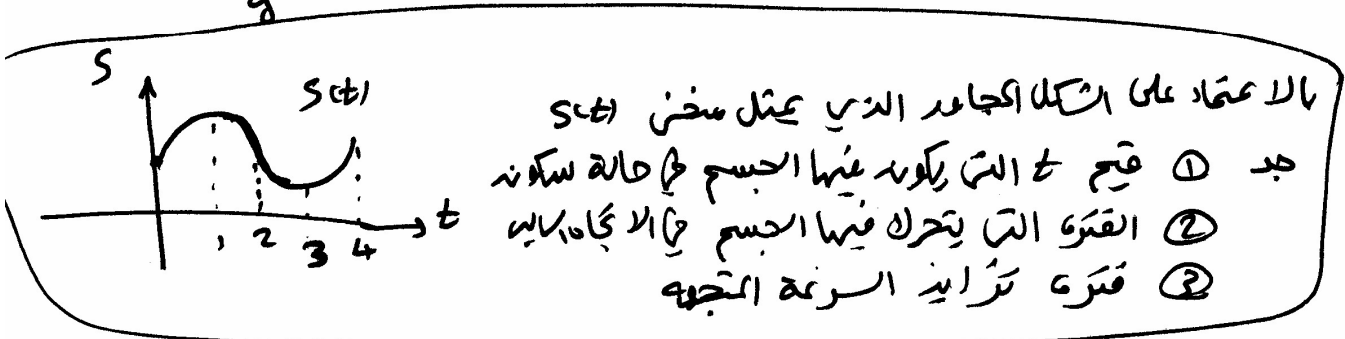 S
S(t)
t
1 2 3 4
بالاعتماد على الشكل المجاور الذي يمثل منحنى S(t)
جد ① قيم t التي يكون فيها الجسم في حالة سكون
② الفترة التي يتحرك فيها الجسم في الاتجاه السالب
③ فترة تزايد السرعة المتجهه